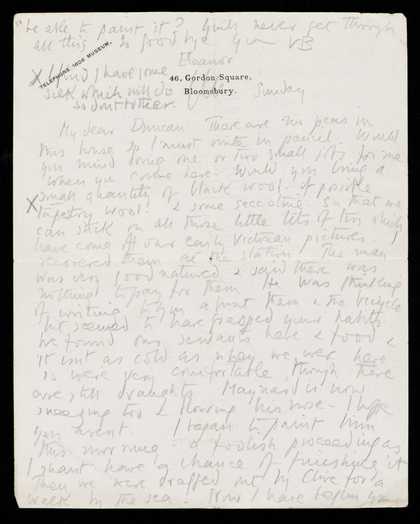 be able to paint it? You'll never get through
all this. So good bye Your VB
TELEPHONE 1808 MUSEUM.
Eleanor
X I find I have some
silk which will do
so don't bother.
46, Gordon Square,
Bloomsbury.
Sunday
My dear Duncan There are no pens in
this house so I must write in pencil. Would
you mind doing one or two small jobs for me
when you come here. Would you bring a
small quantity of black wool if possible
X Tapestry wool! & some seccotine. So that we
can stick on all those little bits of tin which
have come off our early Victorian pictures. I
recovered them at the station. The man
was very good natured & said there was
nothing to pay for them. He was thinking
of writing to you about them & the bicycle
but seemed to have grasped your habits.
We found our servants here & food &
it isn't as cold as when we were here
so were very comfortable though there
are still draughts. Maynard is now
sneezing too & blowing his nose. I hope
you aren't. I began to paint him
this morning – a foolish proceeding as
I shant have a chance of finishing it
Then we were dragged out by Clive for a
walk by the sea. Now I have begun